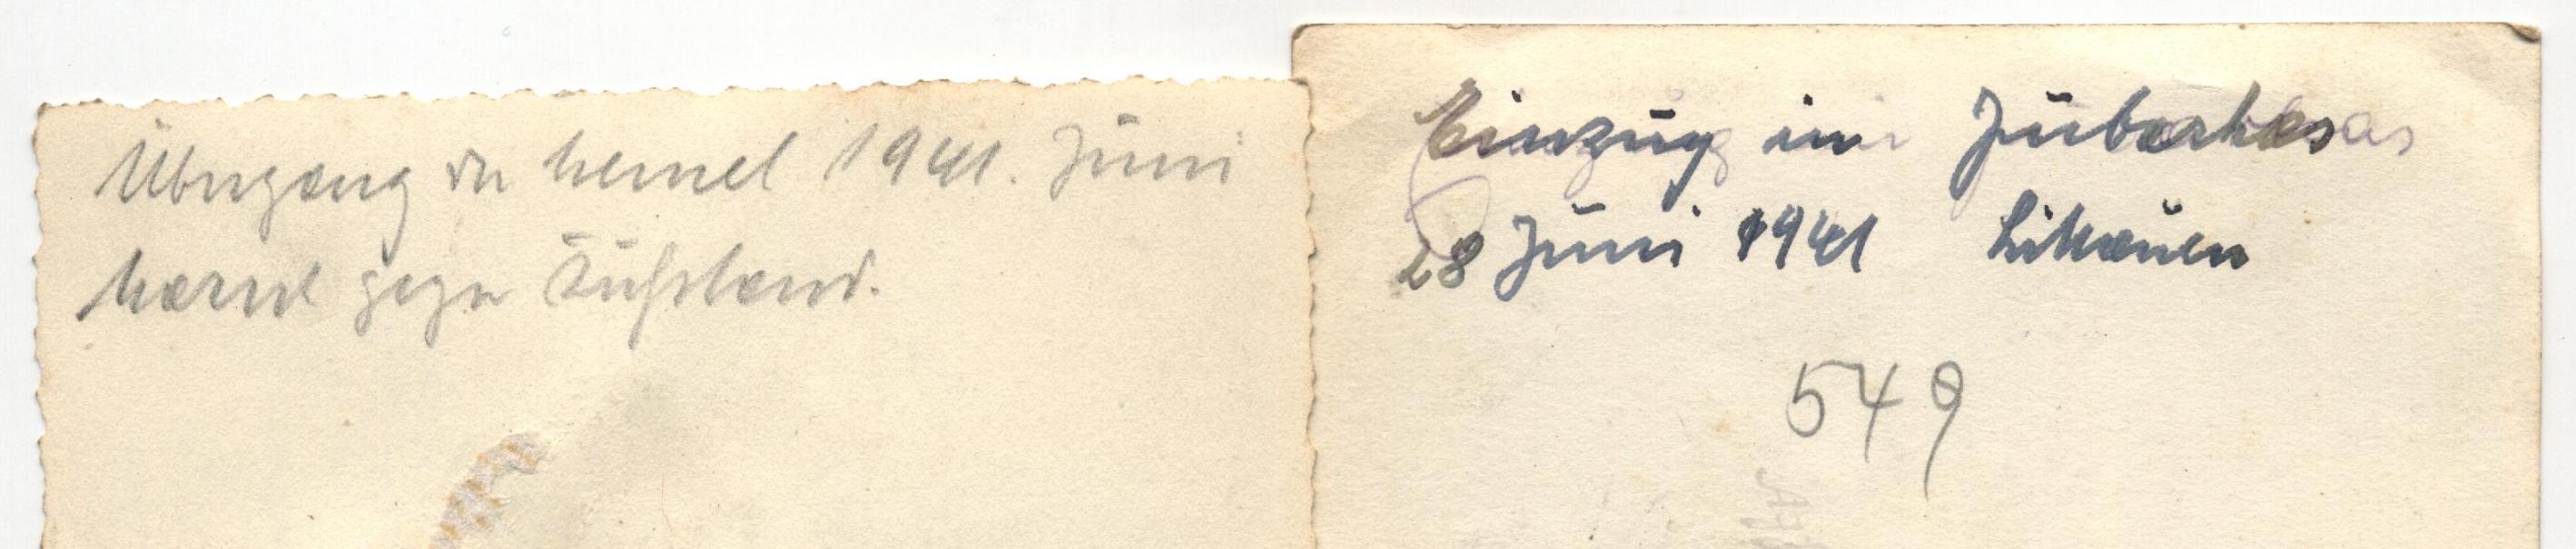 Übergang der Memel 1941. Juni
Marsch gegen Rußland.
Einzug in Jubarkas
28 Juni 1941 Litauen
549